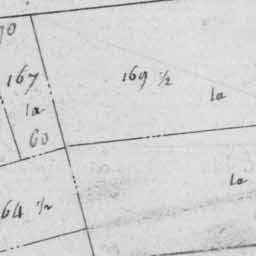 70
167
1a
60
169 1/2
1a
1a
64 1/2